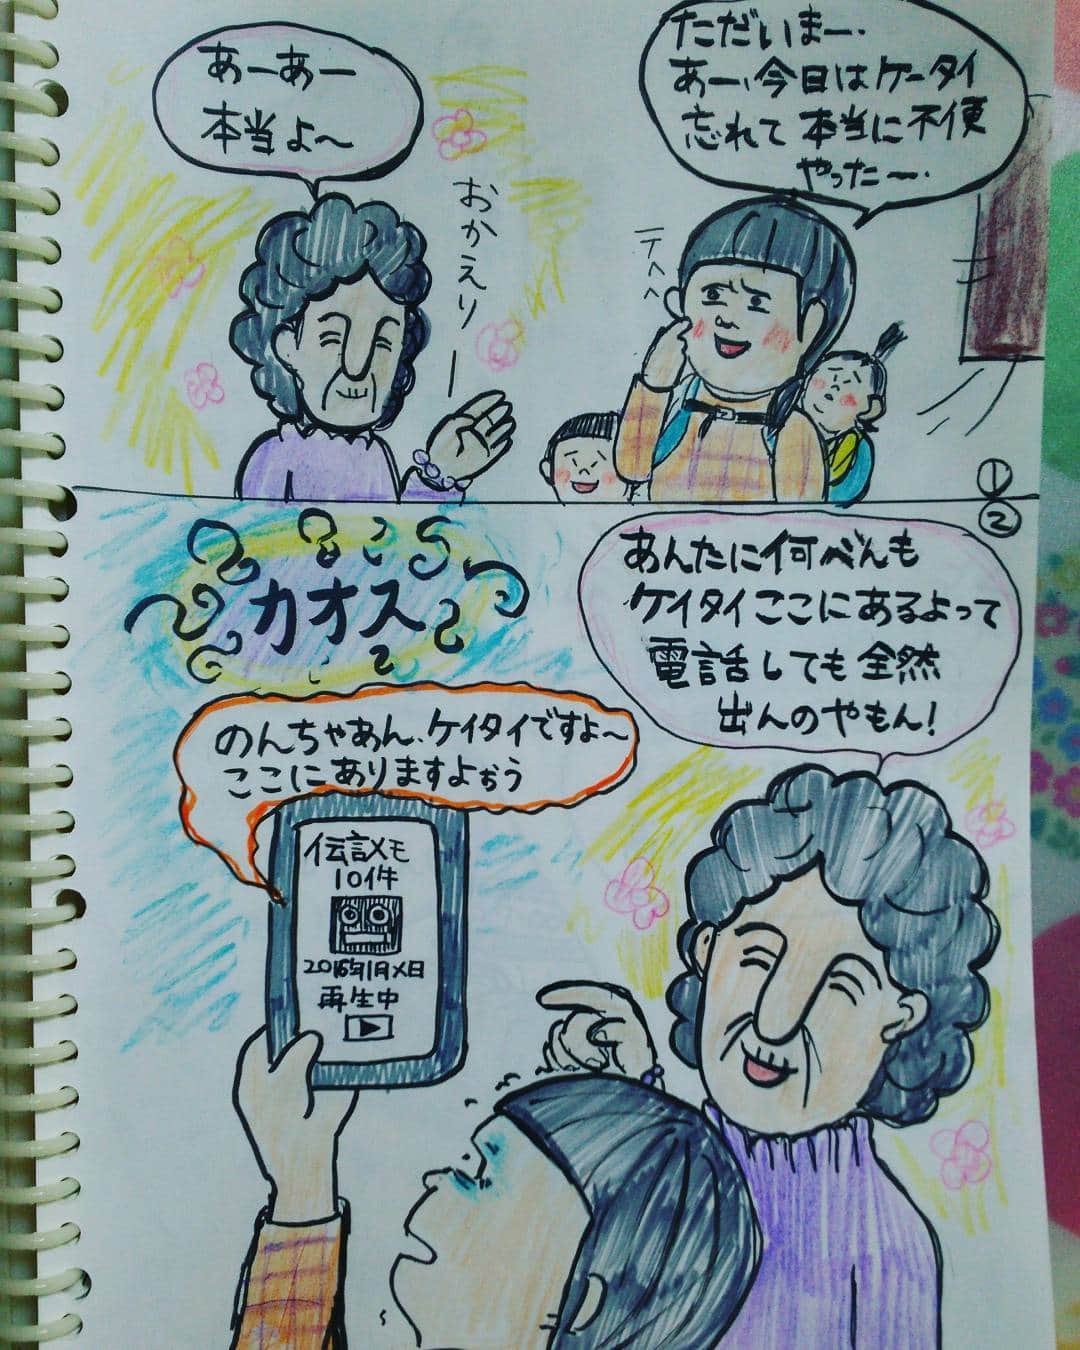 ただいまー.
あー、今日はケータイ
忘れて本当に不便
やったー.
テヘヘ
あーあー
本当よ〜
おかえりー
①
②
あんたに何べんも
ケイタイここにあるよって
電話しても全然
出んのやもん!
カオス
のんちゃあん、ケイタイですよ〜
ここにありますよぉう
伝言メモ
10件
2016年1月X日
再生中